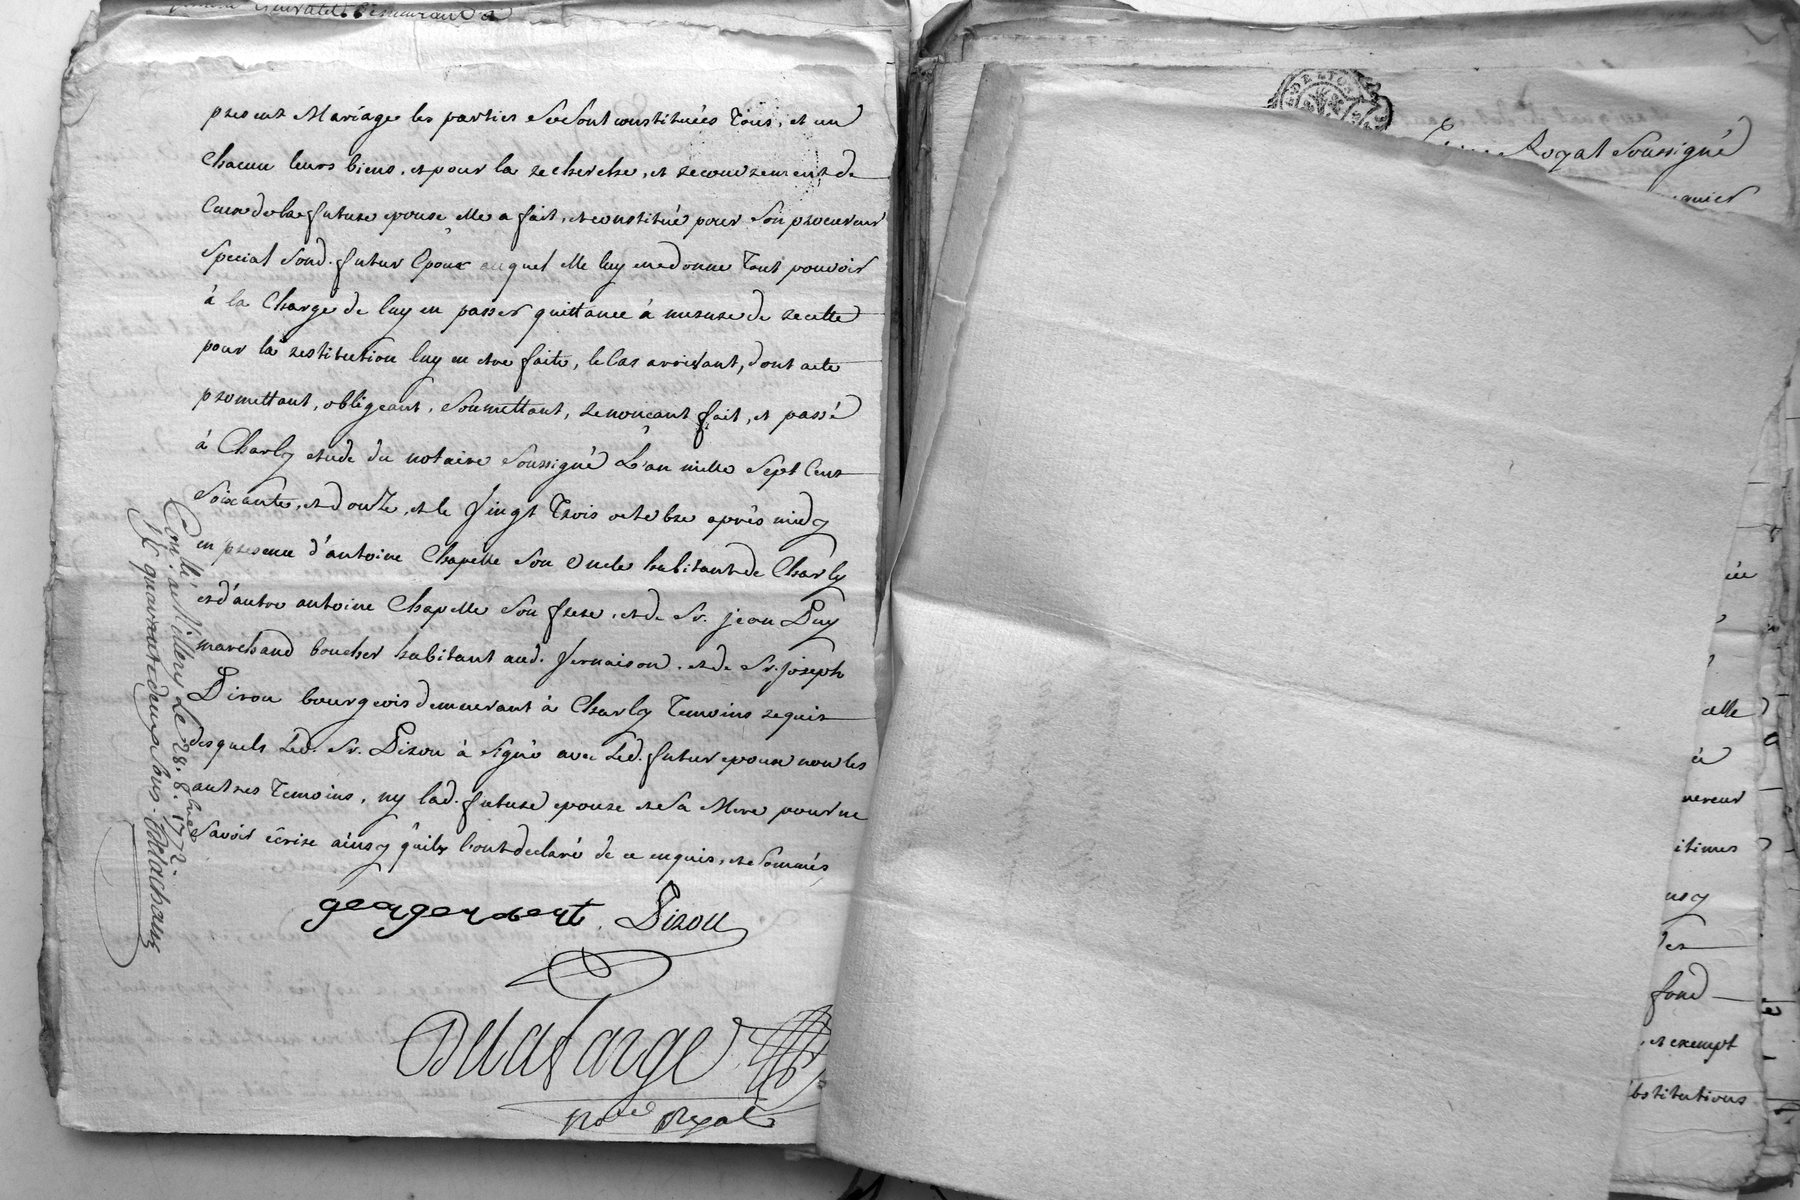 present Mariage les parties se sont constituées Tous, et un
Chacun leurs biens, et pour la recherche, et recouvrement de
Ceux de la future epouse elle a fait, et constitué pour Son procureur
Special Sond. futur Epoux auquel elle luy en donne Tout pouvoir
à la Charge de luy en passer quittance à mesure de recette
pour la restitution luy en etre faite, le Cas arrivant, dont acte
promettant, obligeant, Soumettant, renonçant fait, et passé
à Charly etude du notaire Soussigné L'an mille Sept Cent
Soixante, et douze, et le Vingt Trois octobre après midy
en presence d'antoine Chapelle Son Oncle habitant de Charly
et d'autre antoine Chapelle Son frere, et de Sr. jean Puy
marchand boucher habitant aud. Vernaison, et de Sr. joseph
Pizou bourgeois demeurant à Charly Temoins requis
desquels Led. Sr. Pizou à Signé avec Led. futur epoux non les
autres Temoins, ny lad. future epouse et Sa Mere pour ne
Savoir écrire ainsy qu'ils l'ont declaré de ce enquis, et Sommés
Conllé. à Millery Le 28. 8bre 1772.
quarante deux sols. Delachaux
george Pizou
Delafarge
Nore Royal
DE LYON
Royal Soussigné
elle
à
nereur
itimes
usy
des
fond
, et exempt
bstitutions